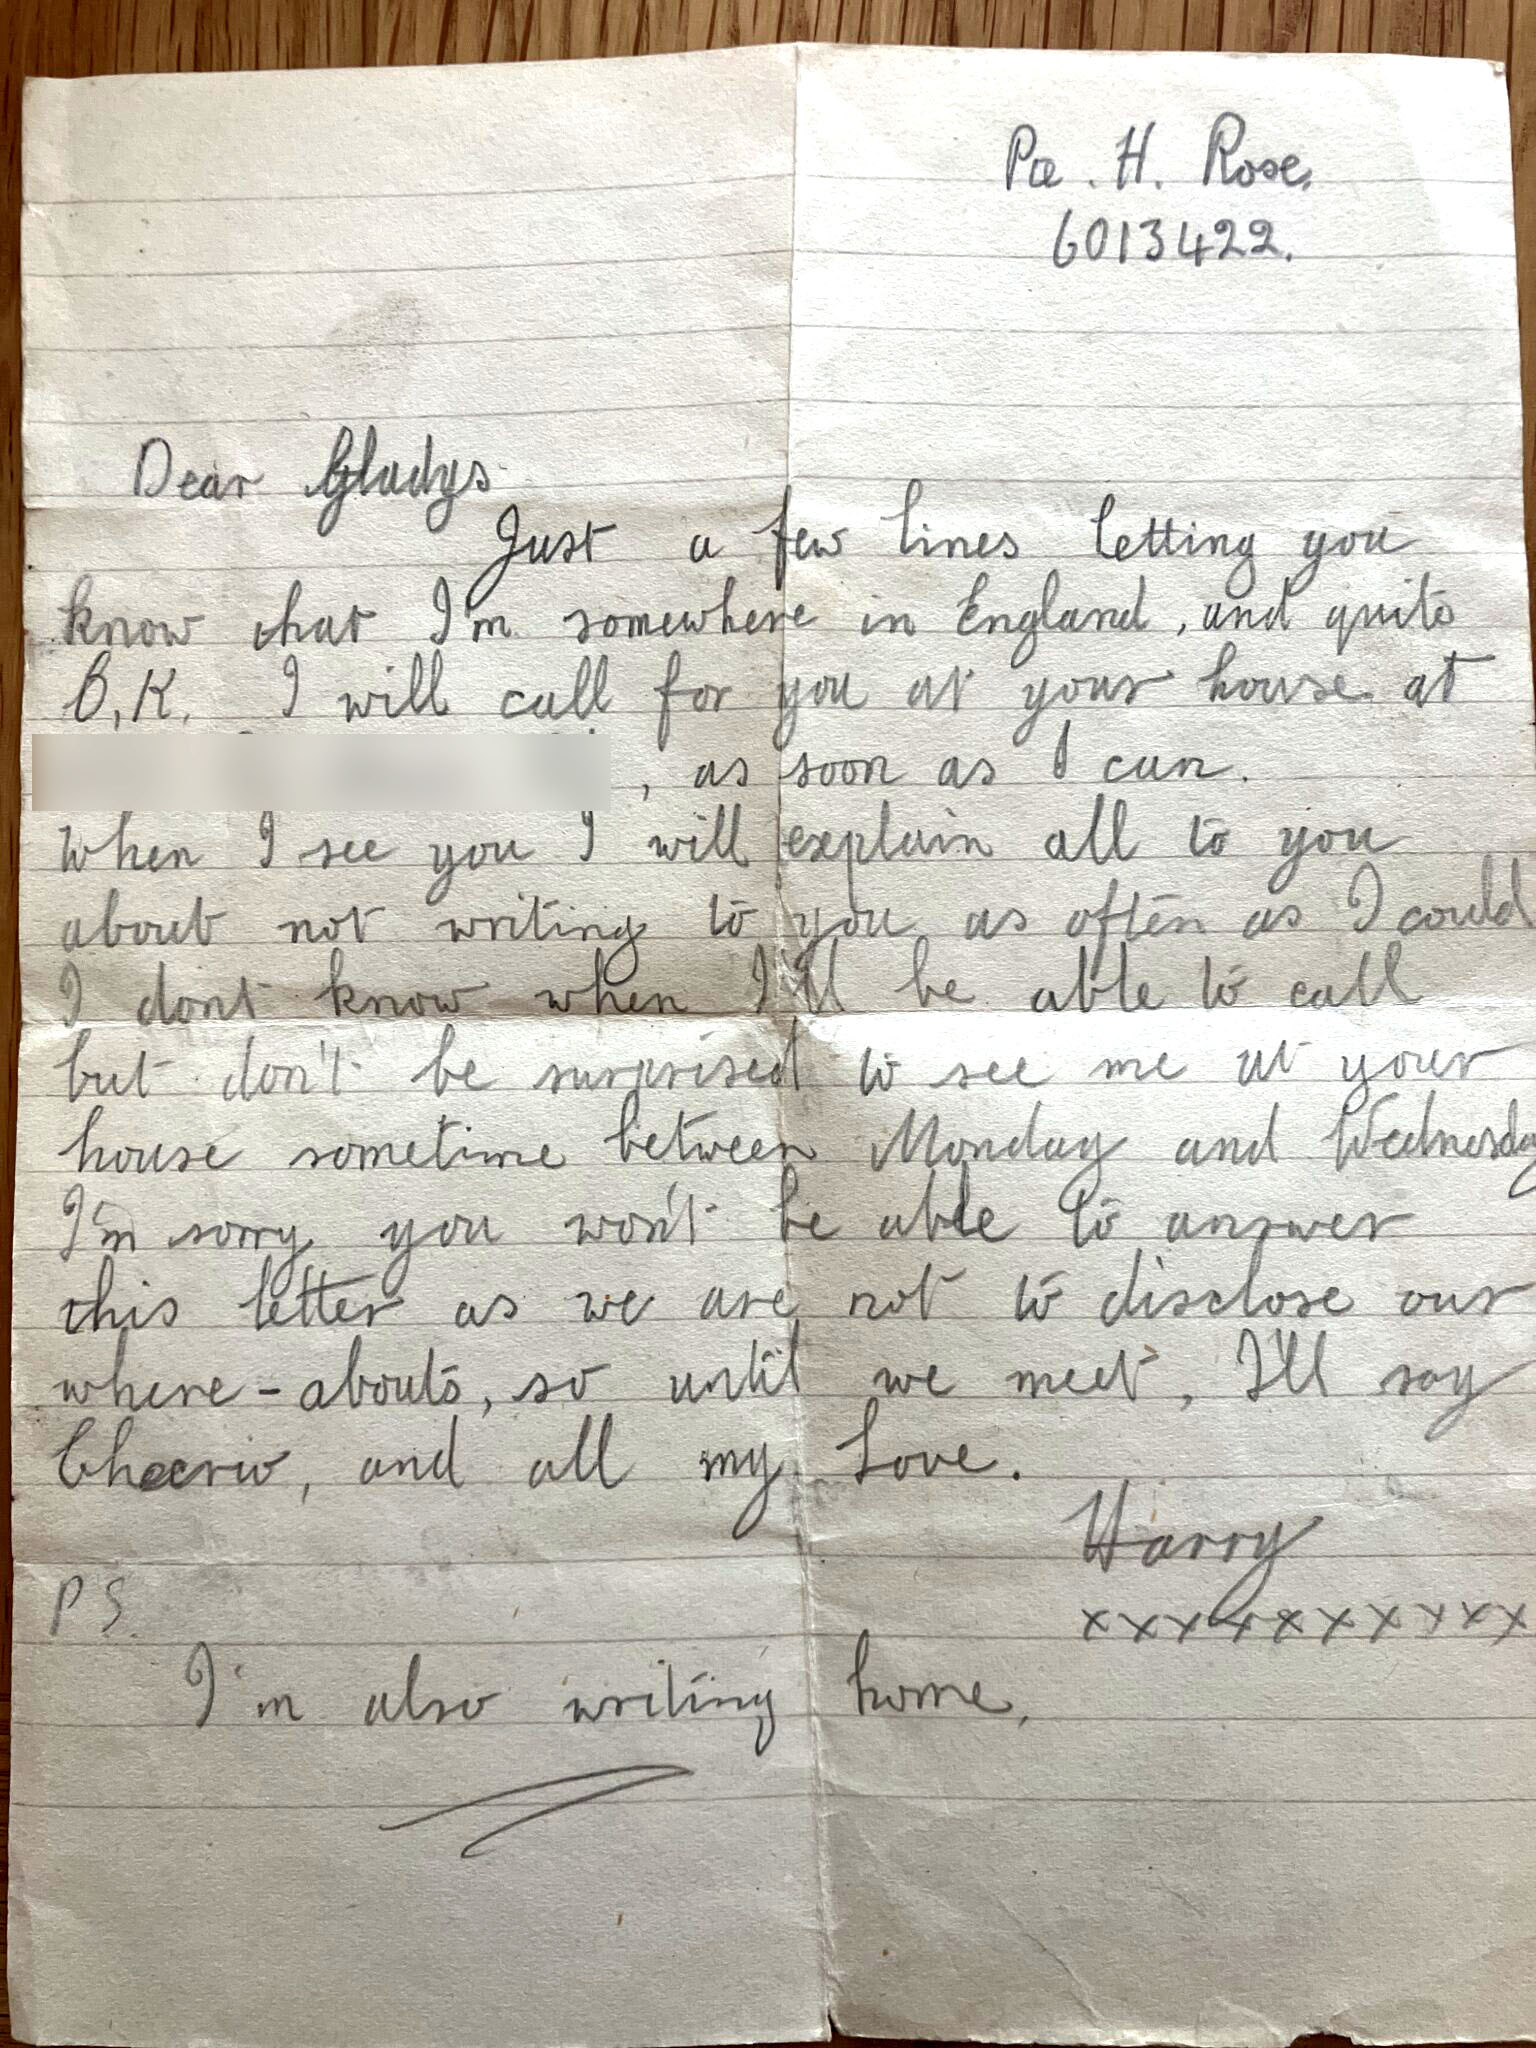 Pte. H. Rose.
6013422.
Dear Gladys
Just a few lines letting you
know that I'm somewhere in England, and quite
O.K. I will call for you at your house at
, as soon as I can.
When I see you I will explain all to you
about not writing to you as often as I could
I dont know when I'll be able to call
but don't be surprised to see me at your
house sometime between Monday and Wednesday
I'm sorry you won't be able to answer
this letter as we are not to disclose our
where-abouts, so until we meet, I'll say
Cheerio, and all my Love.
Harry
xxxxxxxxxx
PS.
I'm also writing home.